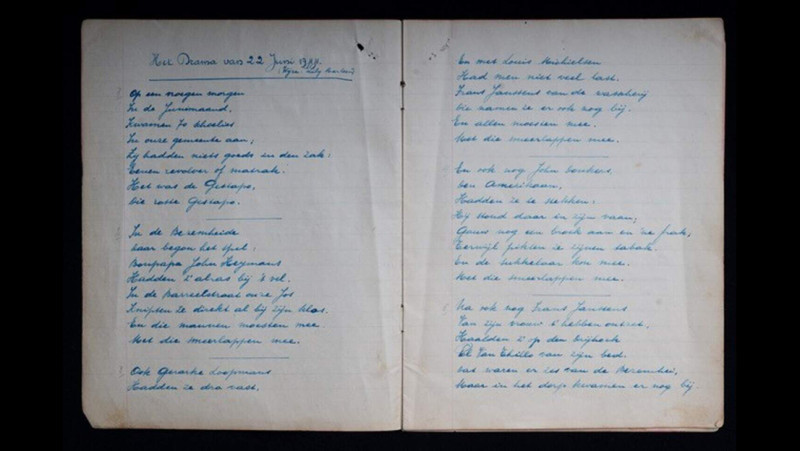 Het Drama van 22 Juni 1944.
Op een morgen
In de Junimaand.
Kwamen zo
In onze gemeente aan;
Zy hadden niets goeds in den zak:
Eenen revolver of matrak.
Het was de Gestapo,
Die rosse Gestapo.
In de Beremheide
Daar begon het spel:
Bompapa John Heymans
Hadden z' al ras bij 't vel.
In de Barreelstraat onze Jos
Knipten ze direkt al bij zijn klos.
En die mannen moesten mee.
Met die smeerlappen mee.
Ook Loopmans
Hadden ze dra vast.
En met Louis Michielsen
Had men niet veel last.
Frans Janssens van de
Die namen ze er ook nog bij.
En allen moesten mee.
Met die smeerlappen mee.
En ook nog John
Den Amerikaan,
Hadden ze te stekken:
Hij stond daar in zijn vaan;
nog een broek aan en 'ne frak,
Terwijl pikten ze zijnen tabak.
En de kon mee.
Met die smeerlappen mee.
Na ook nog Frans Janssens
Van zijn vrouw t' hebben ontrst,
Haalden z' op den
Van zijn bed.
Dat waren er zes van de
Maar in het dorp kwamen er nog bij.